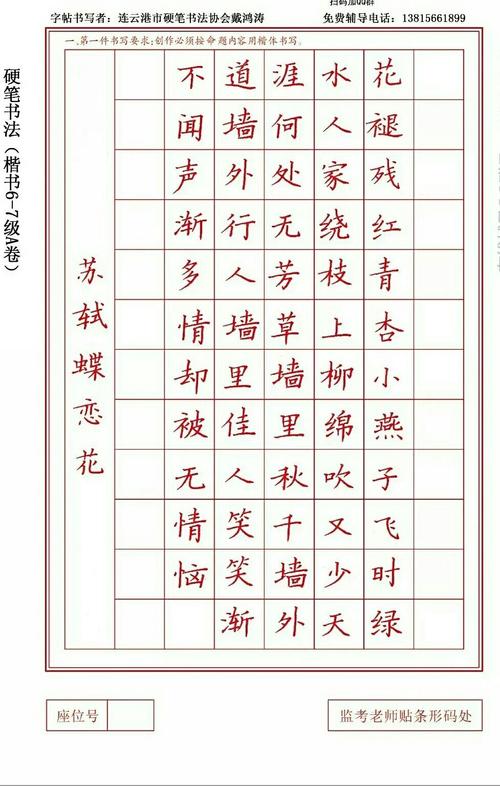 扫码加QQ群
字帖书写者：连云港市硬笔书法协会戴鸿涛 免费辅导电话：13815661899
一.第一件书写要求:创作必须按命题内容用楷体书写。
硬笔书法（楷书6-7级A卷）
花褪残红青杏小燕子飞时绿
水人家绕枝上柳绵吹又少天
涯何处无芳草墙里秋千墙外
道墙外行人墙里佳人笑笑渐
不闻声渐多情却被无情恼
苏轼蝶恋花
座位号
监考老师贴条形码处